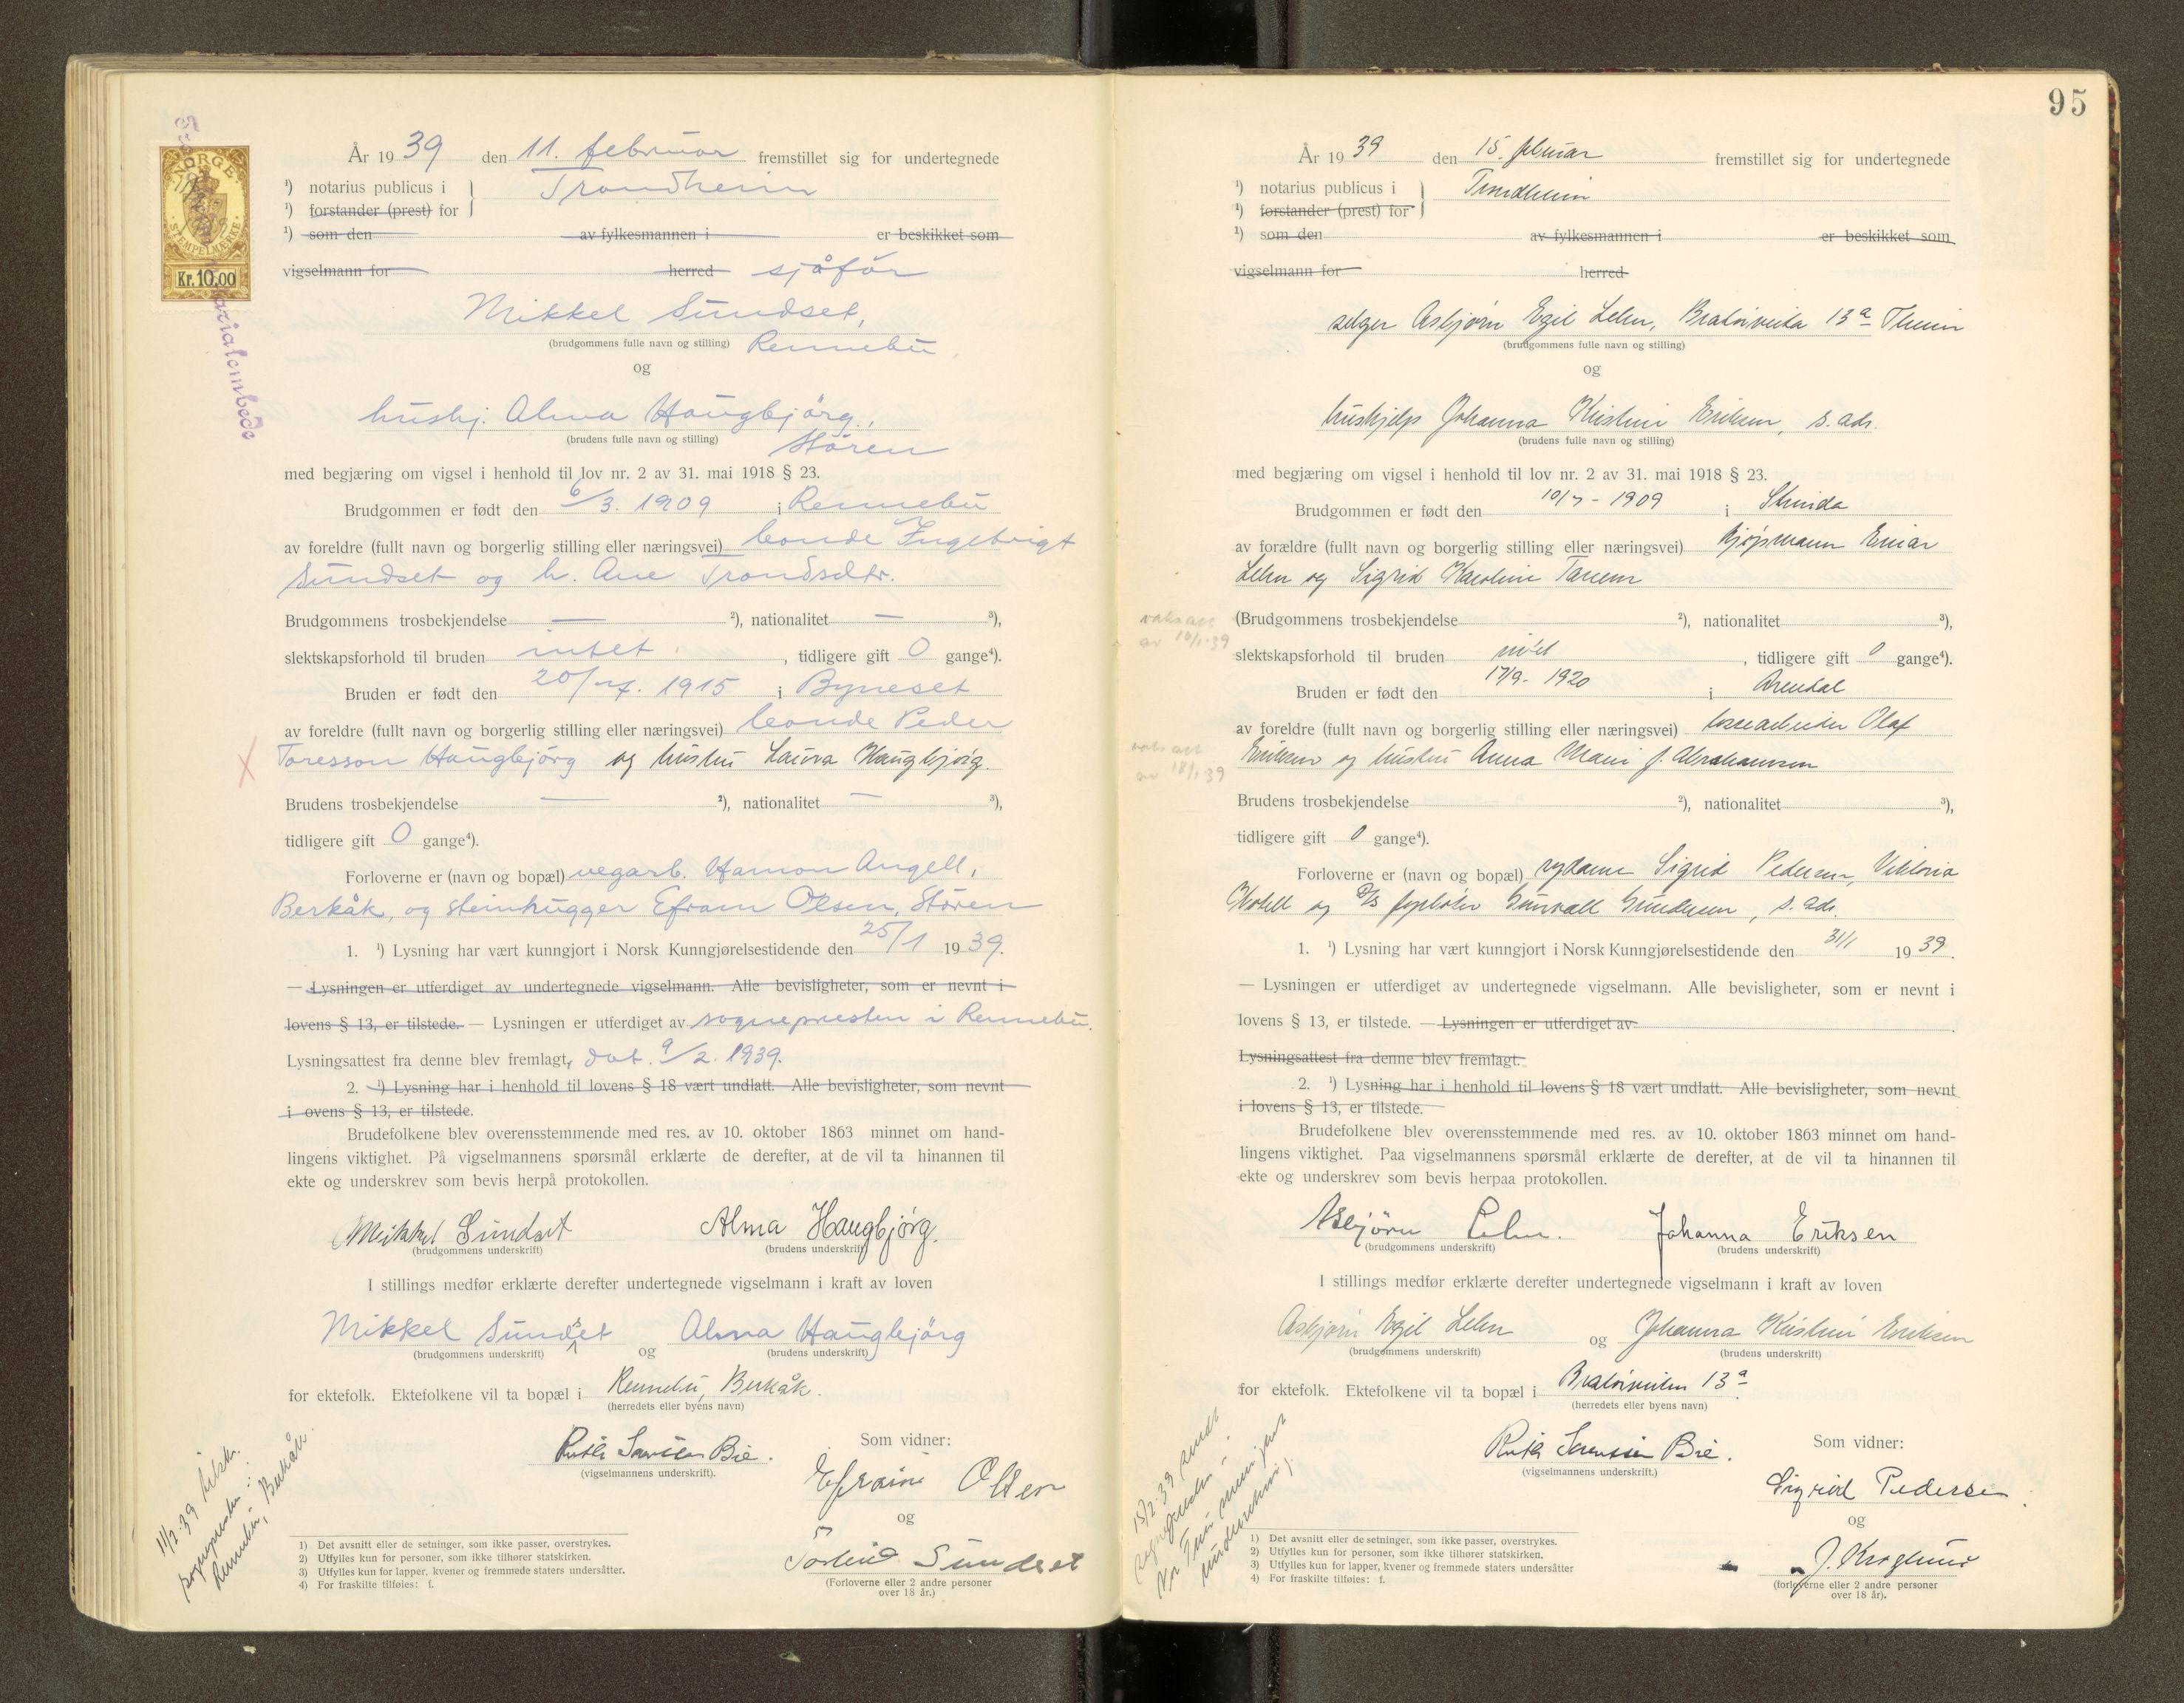 NORGE
STEMPELMERKE
Kr. 10.00
År 1939 den 11. februar fremstillet sig for undertegnede
¹) notarius publicus i } Trondheim
¹) forstander (prest) for
¹) som den av fylkesmannen i er beskikket som
vigselmann for herred sjåfør
Mikkel Sundset,
(brudgommens fulle navn og stilling) Rennebu
og
hushj. Alma Haugbjørg,
(brudens fulle navn og stilling) Støren
med begjæring om vigsel i henhold til lov nr. 2 av 31. mai 1918 § 23.
Brudgommen er født den 6/3. 1909 i Rennebu
av foreldre (fullt navn og borgerlig stilling eller næringsvei) bonde Ingebrigt
Sundset og h. Ane Trondsdtr.
Brudgommens trosbekjendelse — ²), nationalitet — ³),
slektskapsforhold til bruden intet, tidligere gift 0 gange⁴).
Bruden er født den 1915 i Byneset
av foreldre (fullt navn og borgerlig stilling eller næringsvei) bonde Peder
Toresson Haugbjørg og hustru Laura Haugbjørg.
Brudens trosbekjendelse — ²), nationalitet — ³),
tidligere gift 0 gange⁴).
Forloverne er (navn og bopæl) vegarb. Hamon Angell,
Berkåk, og steinhugger Efram Olsen, Støren
1. ¹) Lysning har vært kunngjort i Norsk Kunngjørelsestidende den 25/1 1939.
— Lysningen er utferdiget av undertegnede vigselmann. Alle bevisligheter, som er nevnt i
lovens § 13, er tilstede. — Lysningen er utferdiget av sognepresten i Rennebu.
Lysningsattest fra denne blev fremlagt, dat. 9/2. 1939.
2. ¹) Lysning har i henhold til lovens § 18 vært undlatt. Alle bevisligheter, som nevnt
i ovens § 13, er tilstede.
Brudefolkene blev overensstemmende med res. av 10. oktober 1863 minnet om hand-
lingens viktighet. På vigselmannens spørsmål erklærte de derefter, at de vil ta hinannen til
ekte og underskrev som bevis herpå protokollen.
Mikkel Sundset Alma Haugbjørg.
(brudgommens underskrift) (brudens underskrift)
I stillings medfør erklærte derefter undertegnede vigselmann i kraft av loven
Mikkel Sundset og Alma Haugbjørg
(brudgommens underskrift) (brudens underskrift)
for ektefolk. Ektefolkene vil ta bopæl i Rennebu, Berkåk.
(herredets eller byens navn)
Ruth Sørensen Bie.
(vigselmannens underskrift).
Som vidner:
Efraim Olsen
og
Torleif Sundset
(Forloverne eller 2 andre personer
over 18 år.)
11/2.39
sognepresten i
Rennebu, Berkåk.
1) Det avsnitt eller de setninger, som ikke passer, overstrykes.
2) Utfylles kun for personer, som ikke tilhører statskirken.
3) Utfylles kun for lapper, kvener og fremmede staters undersåtter.
4) For fraskilte tilføies: f.
95
År 1939 den 15. februar fremstillet sig for undertegnede
¹) notarius publicus i } Trondheim
¹) forstander (prest) for
¹) som den av fylkesmannen i er beskikket som
vigselmann for herred
selger Asbjørn Egil Lehn, Bratørveita 13a Theim
(brudgommens fulle navn og stilling)
og
hushjelp Johanna Kristine Eriksen, s. adr.
(brudens fulle navn og stilling)
med begjæring om vigsel i henhold til lov nr. 2 av 31. mai 1918 § 23.
Brudgommen er født den 10/7 - 1909 i Strinda
av forældre (fullt navn og borgerlig stilling eller næringsvei) kjøpmann Einar
Lehn og Sigrid Karoline Tanem
(Brudgommens trosbekjendelse ²), nationalitet ³),
slektskapsforhold til bruden intet, tidligere gift 0 gange⁴).
Bruden er født den 17/9 - 1920 i Arendal
av foreldre (fullt navn og borgerlig stilling eller næringsvei) lossearbeider Olaf
Eriksen og hustru Anna Marie f. Abrahamsen
Brudens trosbekjendelse ²), nationalitet ³),
tidligere gift 0 gange⁴).
Forloverne er (navn og bopæl) sydame Sigrid Pedersen, Viktoria
Hotell og Gunvall Gundersen, s. adr.
1. ¹) Lysning har vært kunngjort i Norsk Kunngjørelsestidende den 31/1 1939.
— Lysningen er utferdiget av undertegnede vigselmann. Alle bevisligheter, som er nevnt i
lovens § 13, er tilstede. — Lysningen er utferdiget av
Lysningsattest fra denne blev fremlagt.
2. ¹) Lysning har i henhold til lovens § 18 vært undlatt. Alle bevisligheter, som nevnt
i lovens § 13, er tilstede.
Brudefolkene blev overensstemmende med res. av 10. oktober 1863 minnet om hand-
lingens viktighet. Paa vigselmannens spørsmål erklærte de derefter, at de vil ta hinannen til
ekte og underskrev som bevis herpaa protokollen.
Asbjørn Lehn. Johanna Eriksen
(brudgommens underskrift) (brudens underskrift)
I stillings medfør erklærte derefter undertegnede vigselmann i kraft av loven
Asbjørn Egil Lehn og Johanna Kristine Eriksen
(brudgommens underskrift) (brudens underskrift)
for ektefolk. Ektefolkene vil ta bopæl i Bratørveiten 13a
(herredets eller byens navn)
Ruth Sørensen Bie.
(vigselmannens underskrift.)
Som vidner:
Sigrid Pedersen
og
J. Kroglund
(forloverne eller 2 andre personer
over 18 år).
15/2.39 sendt
1) Det avsnitt eller de setninger, som ikke passer, overstrykes.
2) Utfylles kun for personer, som ikke tilhører statskirken.
3) Utfylles kun for lapper, kvener og fremmede staters undersåtter
4) For fraskilte tilføies: f.